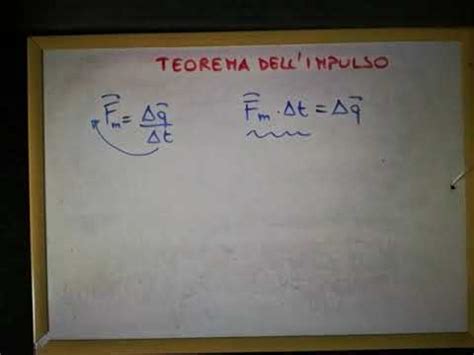 TEOREMA DELL'IMPULSO
F⃗m = Δq⃗/Δt
F⃗m · Δt = Δq⃗